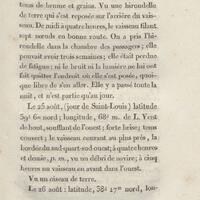 tems de brume et grains. Vu une hirondelle
de terre qui s'est reposée sur l'arrière du vais-
seau. De midi à quatre heures, le vaisseau filant
sept nœuds en bonne route. On a pris l'hi-
rondelle dans la chambre des passagers ; elle
pouvait avoir trois semaines ; elle était perdue
de fatigue ; ni le bruit ni la lumière ne lui ont
fait quitter l'endroit où elle s'est posée, quoi-
que libre de s'en aller. Elle y a passé toute la
nuit, et n'est partie qu'au jour.
Le 25 août, (jour de Saint-Louis) latitude
39d 6m nord ; longitude, 68d m. de L. Vent
de bout, soufflant de l'ouest ; forte brise ; tems
couvert ; le vaisseau courant au plus près, la
bordée du sud-quart-sud-ouest ; à quatre heures
et demie, p. m., vu un débris de navire ; à cinq
heures un vaisseau en avant dans l'ouest.
Vu un oiseau de terre.
Le 26 août : latitude, 38d 17m nord, lon-